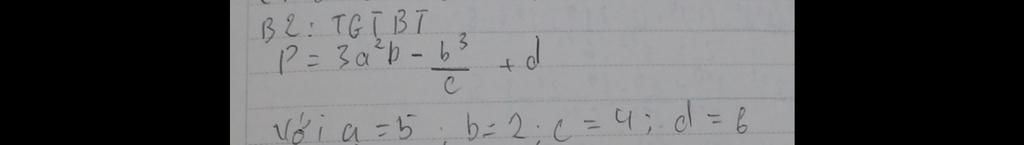 B2: TGTBT
P = 3a²b - b³/c + d
Với a = 5; b = 2; c = 4; d = 6